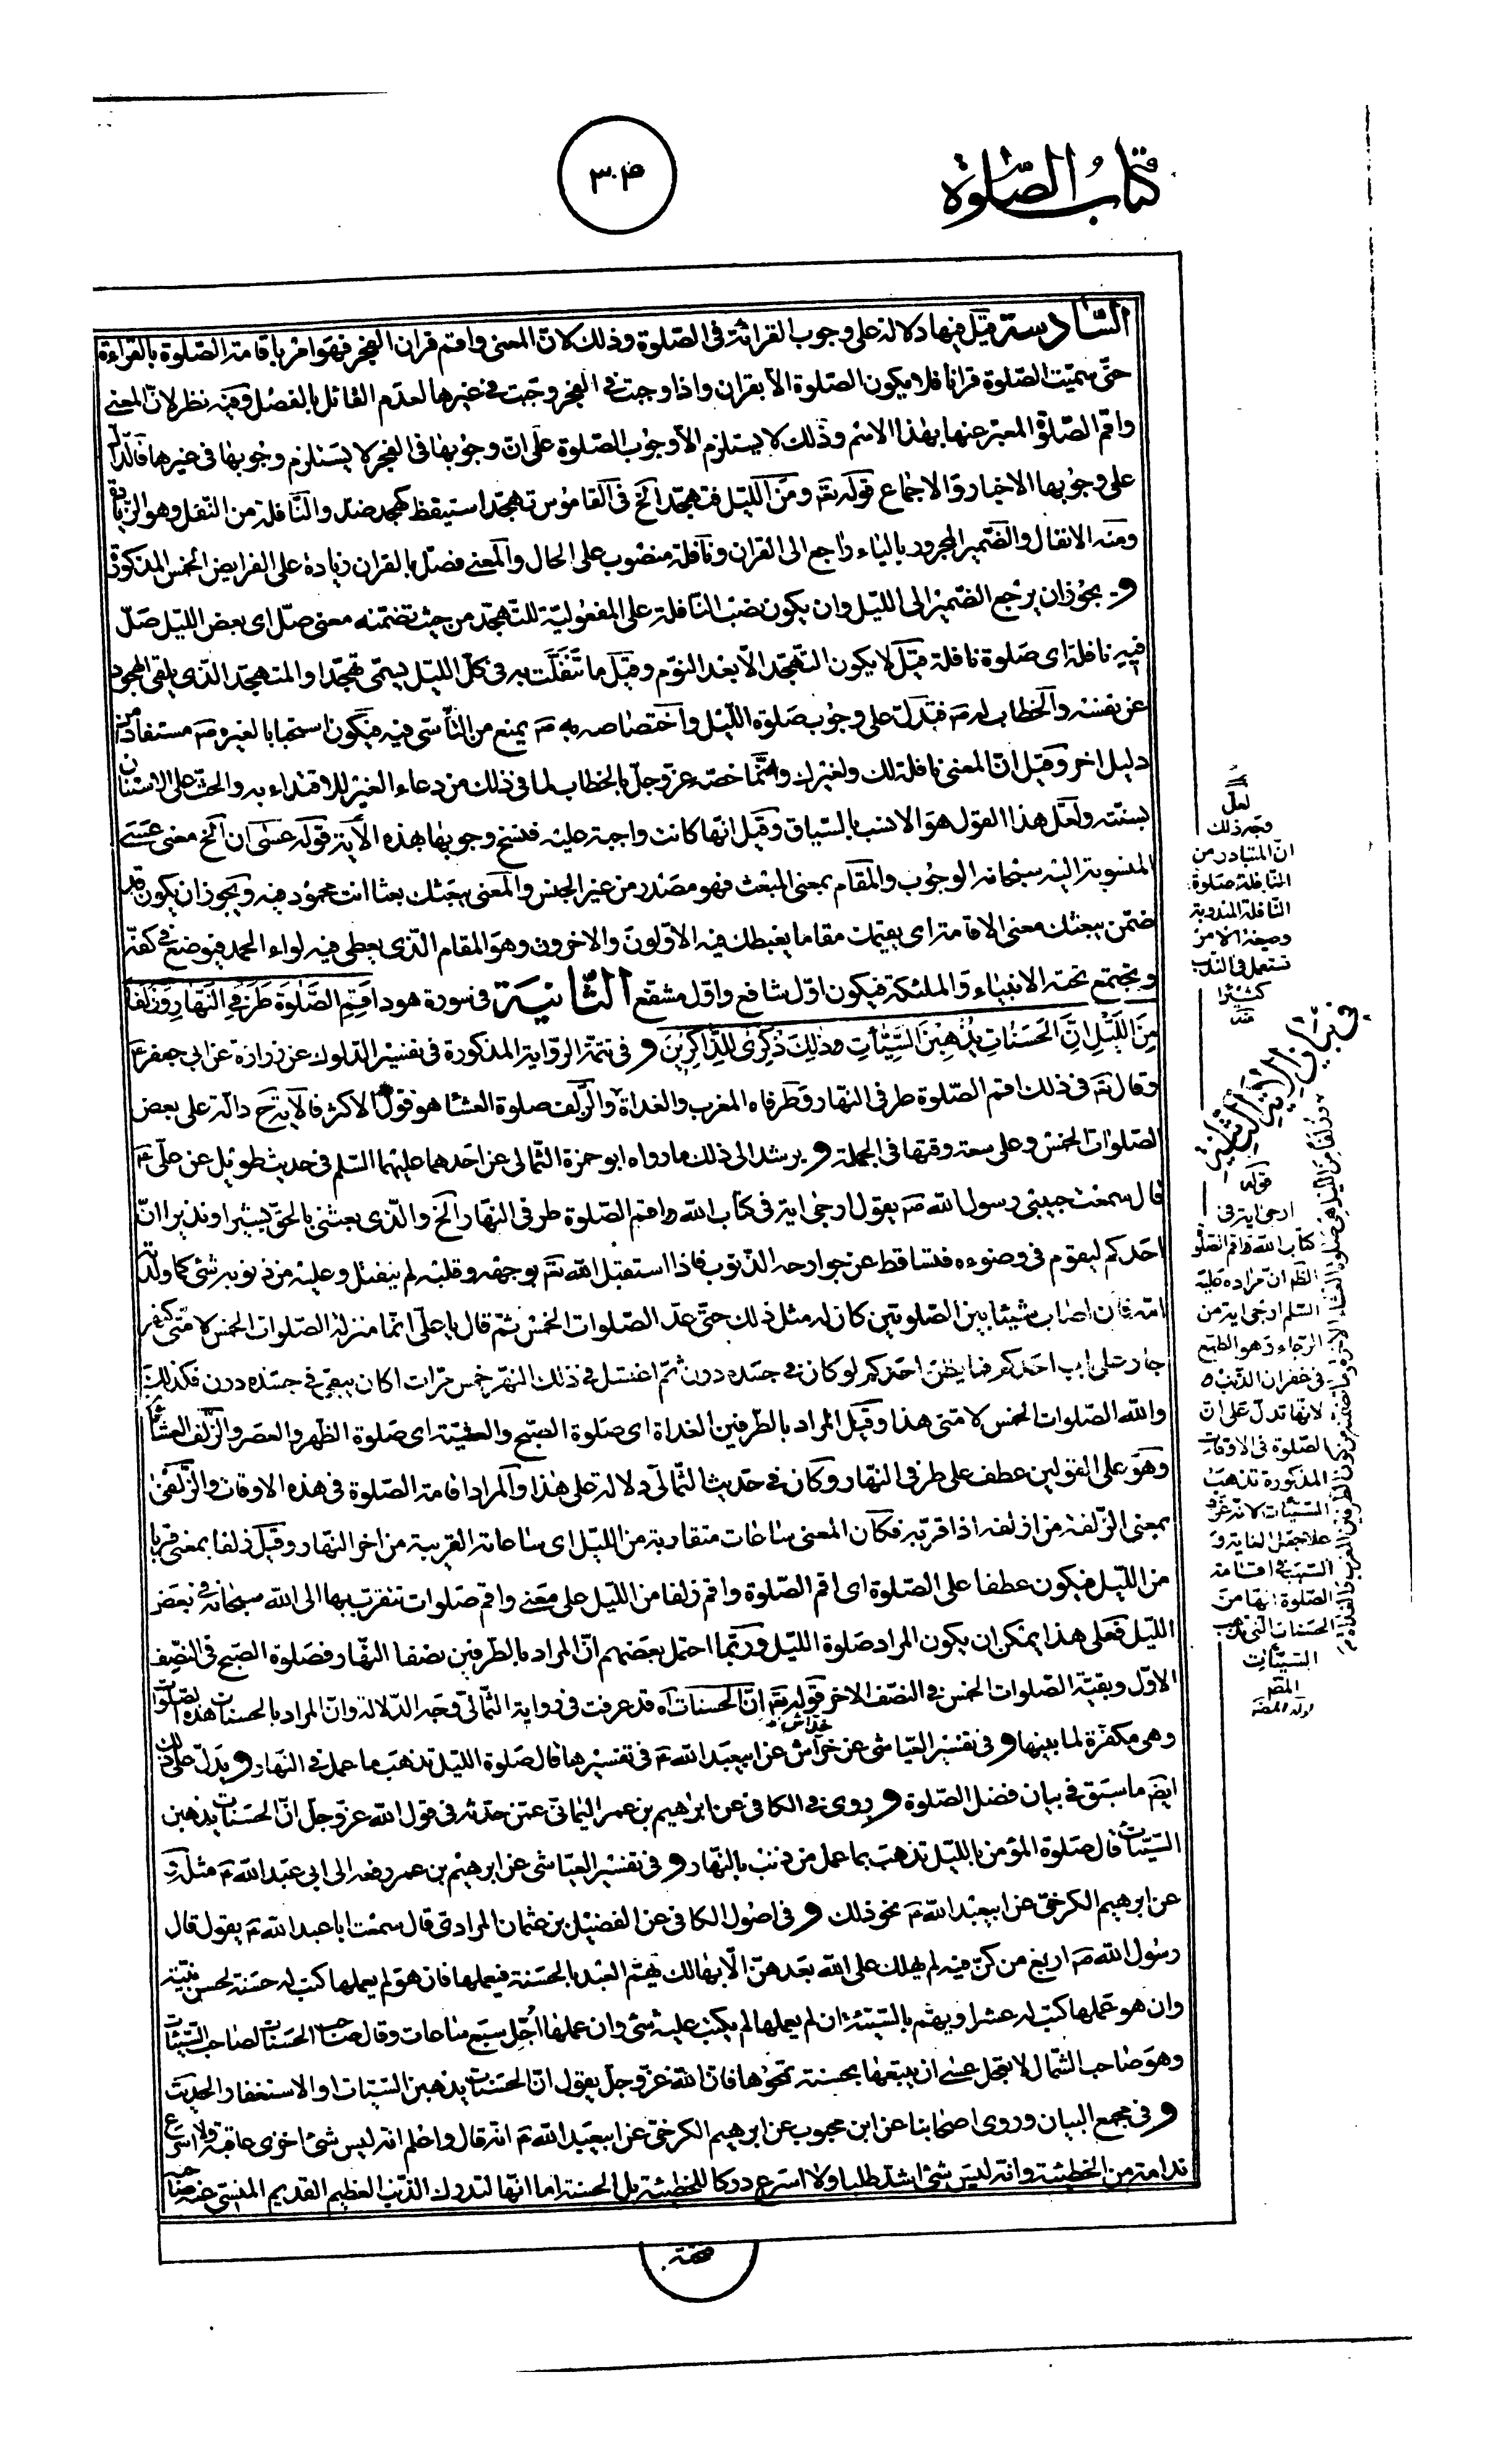 كتاب الصلوة
السادسة قيل فيها دلالة على وجوب القرائة في الصلوة وذلك لان المعنى واقم قران الفجر فهو امر باقامة الصلوة بالقراءة
حتى سميت الصلوة قرانا فلا يكون الصلوة الا بقران واذا وجبت في الفجر وجبت في غيرها لعدم القائل بالفصل وفيه نظر لان المعنى
واقم الصلوة المعبر عنها بهذا الاسم وذلك لا يستلزم الا وجوب الصلوة على ان وجوبها في الفجر لا يستلزم وجوبها في غيرها فالدال
على وجوبها الاخبار والاجماع قوله تع ومن الليل فتهجد الخ في القاموس تهجد استيقظ كهجد ضد والنافلة من النفل وهو الزيادة
ومنه الانفال والضمير المجرور بالباء راجع الى القران ونافلة منصوب على الحال والمعنى فصل بالقران زيادة على الفرايض الخمس المذكورة
و يجوز ان يرجع الضمير الى الليل وان يكون نصب النافلة على المفعولية للتهجد من حيث تضمنه معنى صل اى بعض الليل صل
فيه نافلة اى صلوة نافلة قيل لا يكون التهجد الا بعد النوم وقيل ما تنفلت به في كل الليل يسمى تهجدا والمتهجد الذى يلقى الهجود
عن نفسه والخطاب له ص فتدل على وجوب صلوة الليل واختصاصه به ص يمنع من التأسى فيه فيكون استحبابا لغيره ص مستفاد من
دليل اخر وقيل ان المعنى نافلة لك ولغيرك وانما خصه عز وجل بالخطاب لما في ذلك من دعاء الغير للاقتداء به والحث على الاستنان
بسنته ولعل هذا القول هو الانسب بالسياق وقيل انها كانت واجبة عليه فنسخ وجوبها بهذه الاية قوله عسى ان الخ معنى عسى
المنسوبة اليه سبحانه الوجوب والمقام بمعنى المبعث فهو مصدر من غير الجنس والمعنى يبعثك بعثا انت محمود فيه ويجوز ان يكون قد
ضمن يبعثك معنى الاقامة اى يقيمك مقاما يغبطك فيه الاولون والاخرون وهو المقام الذى يعطى فيه لواء الحمد فيوضع في كفه
ويجتمع تحته الانبياء والملئكة فيكون اول شافع واول مشفع الثانية في سورة هود اقم الصلوة طرفى النهار وزلفا
من الليل ان الحسنات يذهبن السيئات ذلك ذكرى للذاكرين و في تتمة الرواية المذكورة في تفسير الدلوك عن زرارة عن ابى جعفر ع
وقال تع في ذلك اقم الصلوة طرفى النهار وطرفاه المغرب والغداة والزلف صلوة العشا هو قول الاكثر فالاية ح دالة على بعض
الصلوات الخمس وعلى سعة وقتها في الجملة و يرشد الى ذلك ما رواه ابو حمزة الثمالى عن احدهما عليهما السلم في حديث طويل عن على ع
قال سمعت حبيبى رسول الله ص يقول ارجى اية في كتاب الله واقم الصلوة طرفى النهار الخ والذى بعثنى بالحق بشيرا ونذيرا ان
احدكم ليقوم في وضوءه فتساقط عن جوارحه الذنوب فاذا استقبل الله تع بوجهه وقلبه لم ينفتل وعليه من ذنوبه شئ كما ولدته
امه فان اصاب شيئا بين الصلوتين كان له مثل ذلك حتى عد الصلوات الخمس ثم قال يا على انما منزلة الصلوات الخمس لامتى كنهر
جار على باب احدكم فما يظن احدكم لو كان في جسده درن ثم اغتسل في ذلك النهر خمس مرات اكان يبقى في جسده درن فكذلك
والله الصلوات الخمس لامتى هذا وقيل المراد بالطرفين الغداة اى صلوة الصبح والعشية اى صلوة الظهر والعصر والزلف العشائين
وهو على القولين عطف على طرفى النهار وكان في حديث الثمالى دلالة على هذا والمراد اقامة الصلوة في هذه الاوقات والزلفى
بمعنى الزلفة من ازلفه اذا قربه فكان المعنى ساعات متقاربة من الليل اى ساعاته القريبة من اخر النهار وقيل زلفا بمعنى قربا
من الليل فيكون عطفا على الصلوة اى اقم الصلوة واقم زلفا من الليل على معنى واقم صلوات تتقرب بها الى الله سبحانه في بعض
الليل فعلى هذا يمكن ان يكون المراد صلوة الليل وربما احتمل بعضهم ان المراد بالطرفين نصفا النهار فصلوة الصبح في النصف
الاول وبقية الصلوات الخمس في النصف الاخر قوله تع ان الحسنات اه قد عرفت في رواية الثمالى وجه الدلالة وان المراد بالحسنات هذه الصلوات
وهى مكفرة لما بينها و في تفسير العياشى عن خراش عن ابيعبد الله ع في تفسيرها قال صلوة الليل تذهب ما عمل في النهار و يدل على ذلك
ايضا ما سبق في بيان فضل الصلوة و روى في الكافى عن ابراهيم بن عمر اليمانى عمن حدثه في قول الله عز وجل ان الحسنات يذهبن
السيئات قال صلوة المؤمن بالليل تذهب بما عمل من ذنب بالنهار و في تفسير العياشى عن ابرهيم بن عمر رفعه الى ابى عبد الله ع مثله و
عن ابرهيم الكرخى عن ابيعبد الله ع نحو ذلك و في اصول الكافى عن الفضيل بن عثمان المرادى قال سمعت ابا عبد الله ع يقول قال
رسول الله ص اربع من كن فيه لم يهلك على الله بعدهن الا هالك يهم العبد بالحسنة فيعملها فان هو لم يعملها كتب له حسنة لحسن نيته
وان هو عملها كتب له عشرا ويهم بالسيئة ان لم يعملها لم يكتب عليه شئ وان عملها اجل سبع ساعات وقال صاحب الحسنات لصاحب السيئات
وهو صاحب الشمال لا تعجل عسى ان يتبعها بحسنة تمحوها فان الله عز وجل يقول ان الحسنات يذهبن السيئات او الاستغفار الحديث
و في مجمع البيان وروى اصحابنا عن ابن محبوب عن ابرهيم الكرخى عن ابيعبد الله ع انه قال واعلم انه ليس شئ اخزى عاقبة ولا اسرع
ندامة من الخطيئة وانه ليس شئ اشد طلبا ولا اسرع دركا للخطيئة من الحسنة اما انها لتدرك الذنب العظيم القديم المنسى عند صاحبه
لعل
وجه ذلك
ان المتبادر من
النافلة صلوة
النافلة المندوبة
وصيغة الامر
تستعمل في الندب
كثيرا
منه
في بيان الاية الثانية
قوله
ارجى اية في
كتاب الله واقم الصلو
الظ ان مراده عليه
السلم ارجى اية من
الرجاء وهو الطمع
في غفران الذنب
لانها تدل على ان
الصلوة في الاوقات
المذكورة تذهب
السيئات لانه عز و
علا جعل لغاية و
في اقامة
الصلوة انها من
الحسنات التى تذهب
السيئات